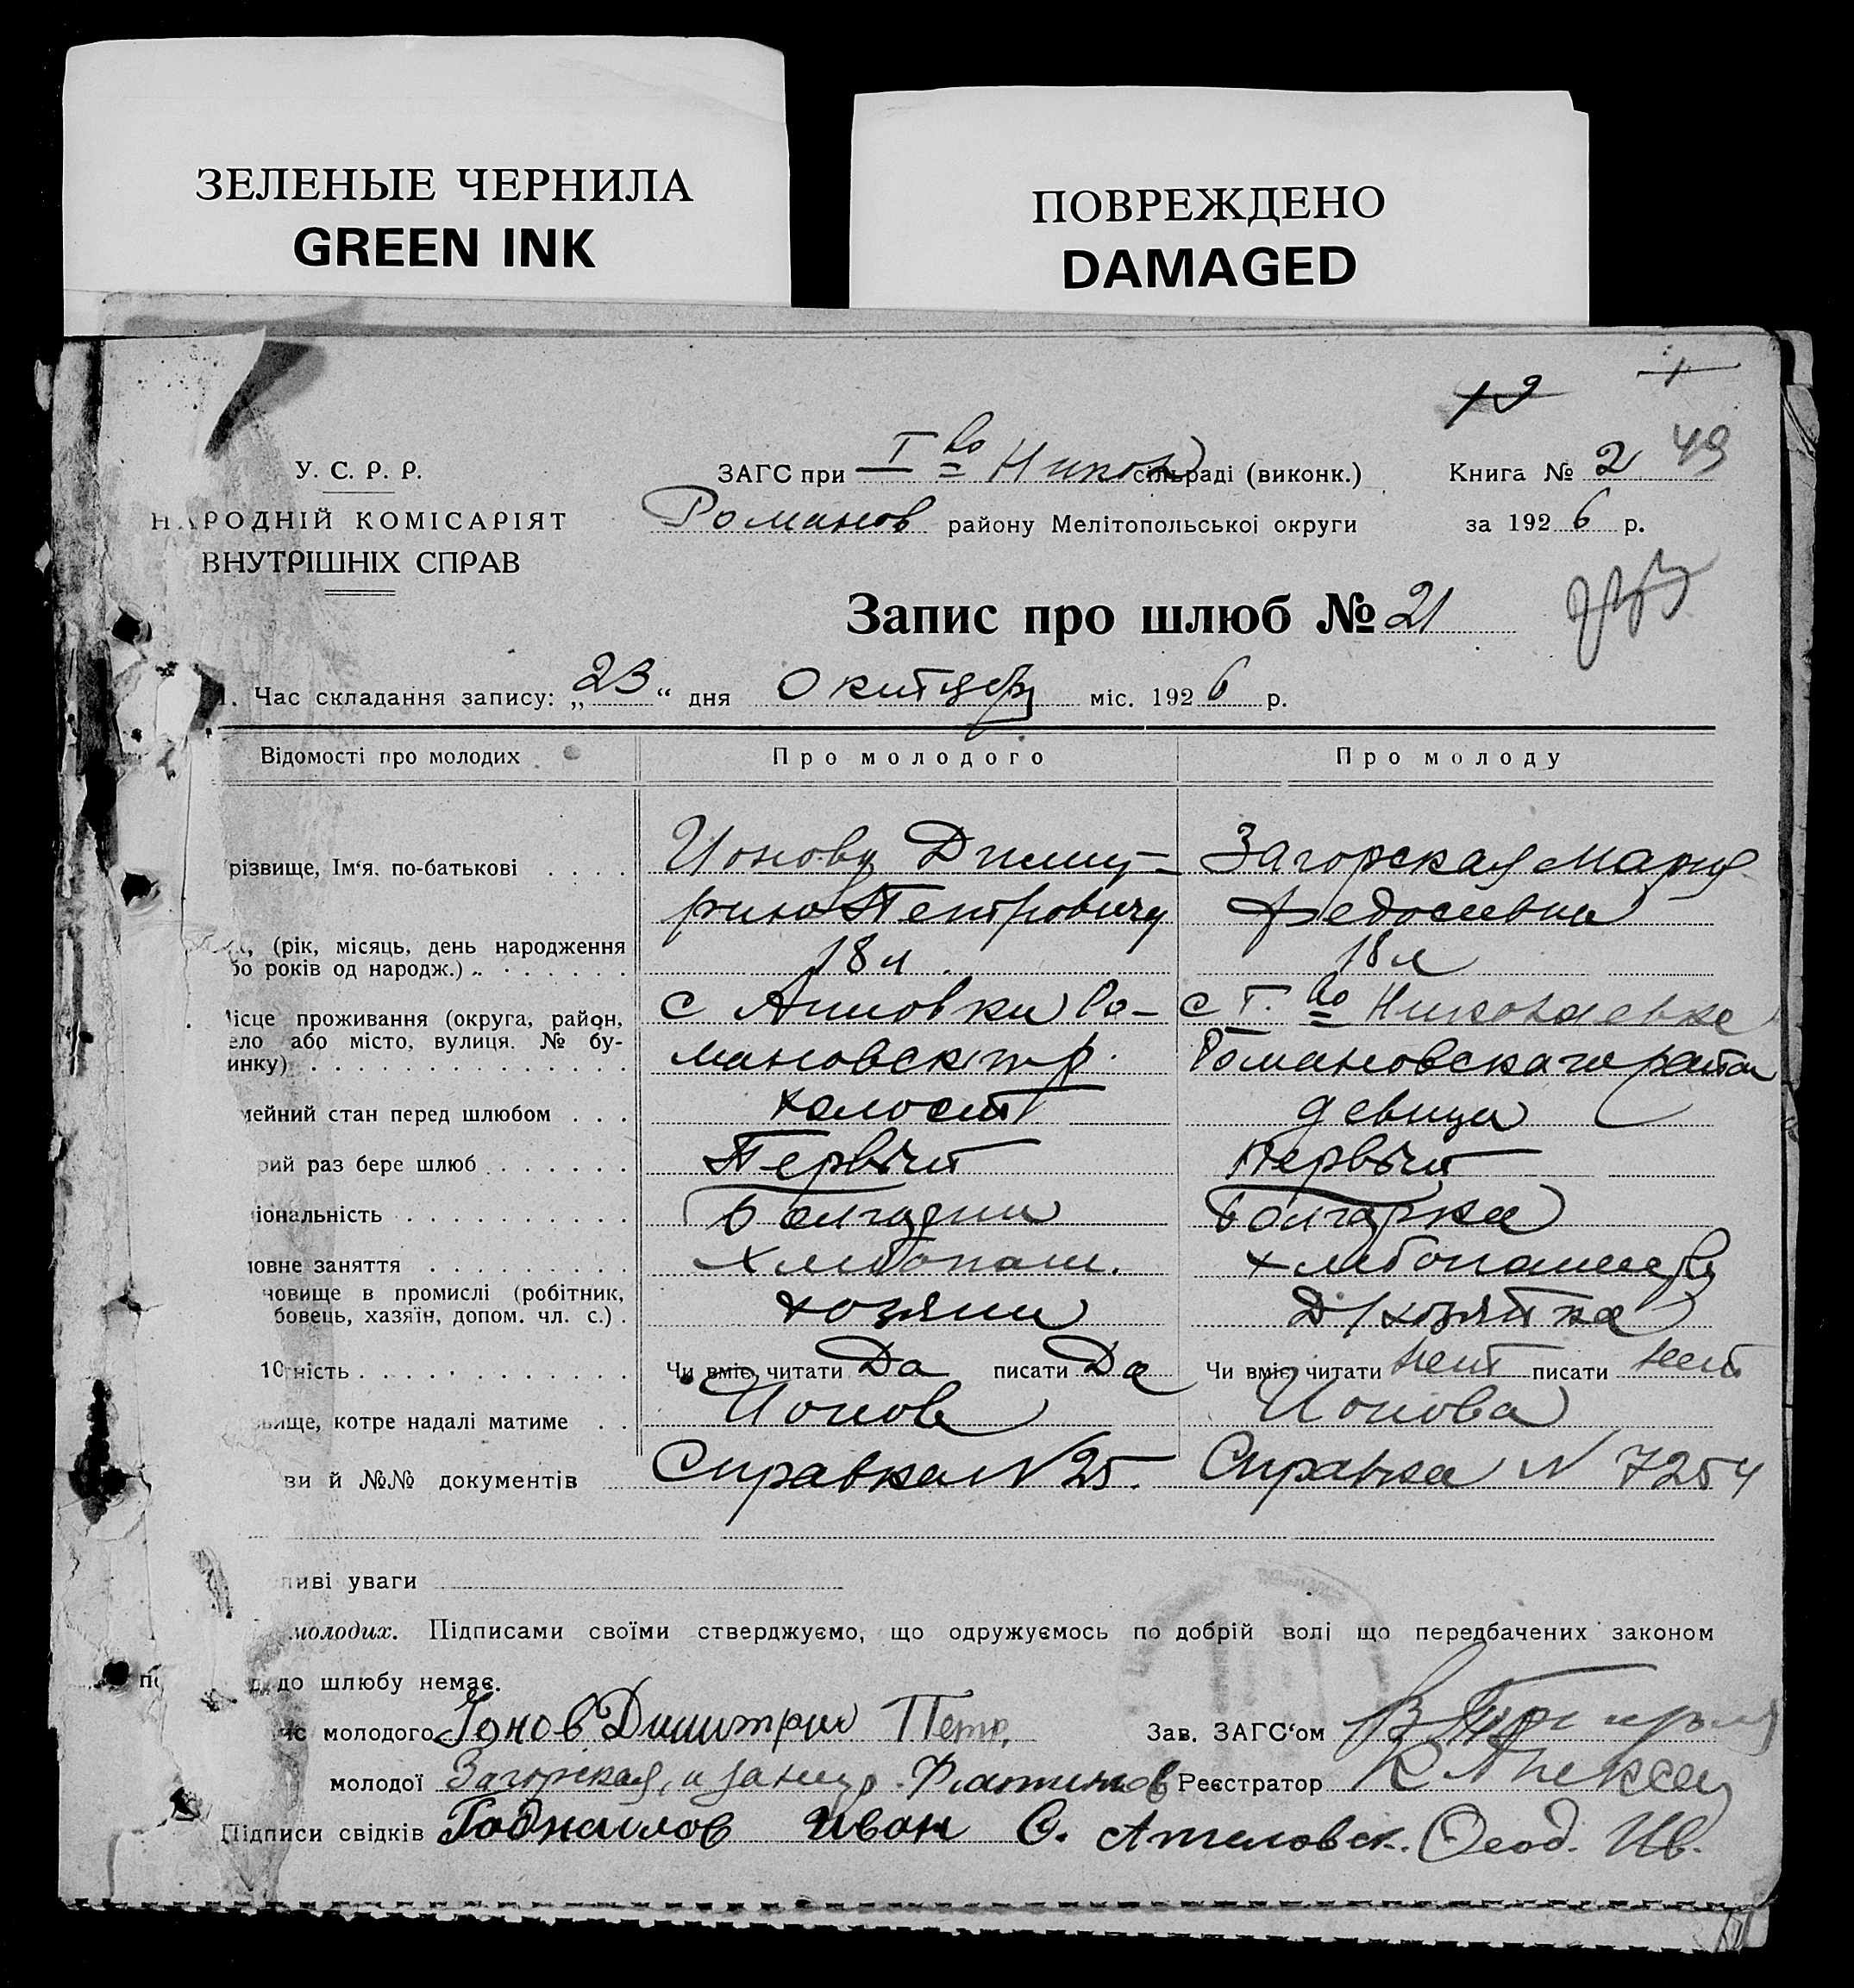 ЗЕЛЕНЫЕ ЧЕРНИЛА
GREEN INK
ПОВРЕЖДЕНО
DAMAGED
19
49
У. С. Р. Р.
НАРОДНІЙ КОМІСАРІЯТ
ВНУТРІШНІХ СПРАВ
ЗАГС при І во Никол сільраді (виконк.)
Романов району Мелітопольської округи
Книга № 2
за 1926 р.
Запис про шлюб № 21
1. Час складання запису: „23“ дня Октября міс. 1926 р.
Відомості про молодих Про молодого Про молоду
різвище, Ім‘я, по-батькові . . . . Ионову Димит- Загорская Мария
рию Петровичу Федосиевна
(рік, місяць, день народження
бо років од народж.) . . 18 л. 18 л
ісце проживання (округа, район, с Анновки Ро- с І. во Николаевке
ело або місто, вулиця. № бу-
инку) мановск р. Романовскаго район
мейний стан перед шлюбом . . . холост девица
рий раз бере шлюб Первый Первый
іональність Болгарин Болгарка
ловне заняття Хлебопаш. Хлебопашец
новище в промислі (робітник,
бовець, хазяїн, допом. чл. с.) . хозяин Д/хозяйка
10 ність Чи вміє читати Да писати Да Чи вміє читати нет писати нет
звище, котре надалі матиме . . Ионов Ионова
ви й №№ документів Справка N 25. Справка N 7254
ливі уваги
молодих. Підписами своїми стверджуємо, що одружуємось по добрій волі що передбачених законом
до шлюбу немає.
ис молодого Іонов Димитрий Петр. Зав. ЗАГС‘ом
молодої Загорская, а за нещ. Реєстратор
Підписи свідків Иван С. Ангеловск. Феод. Ив.